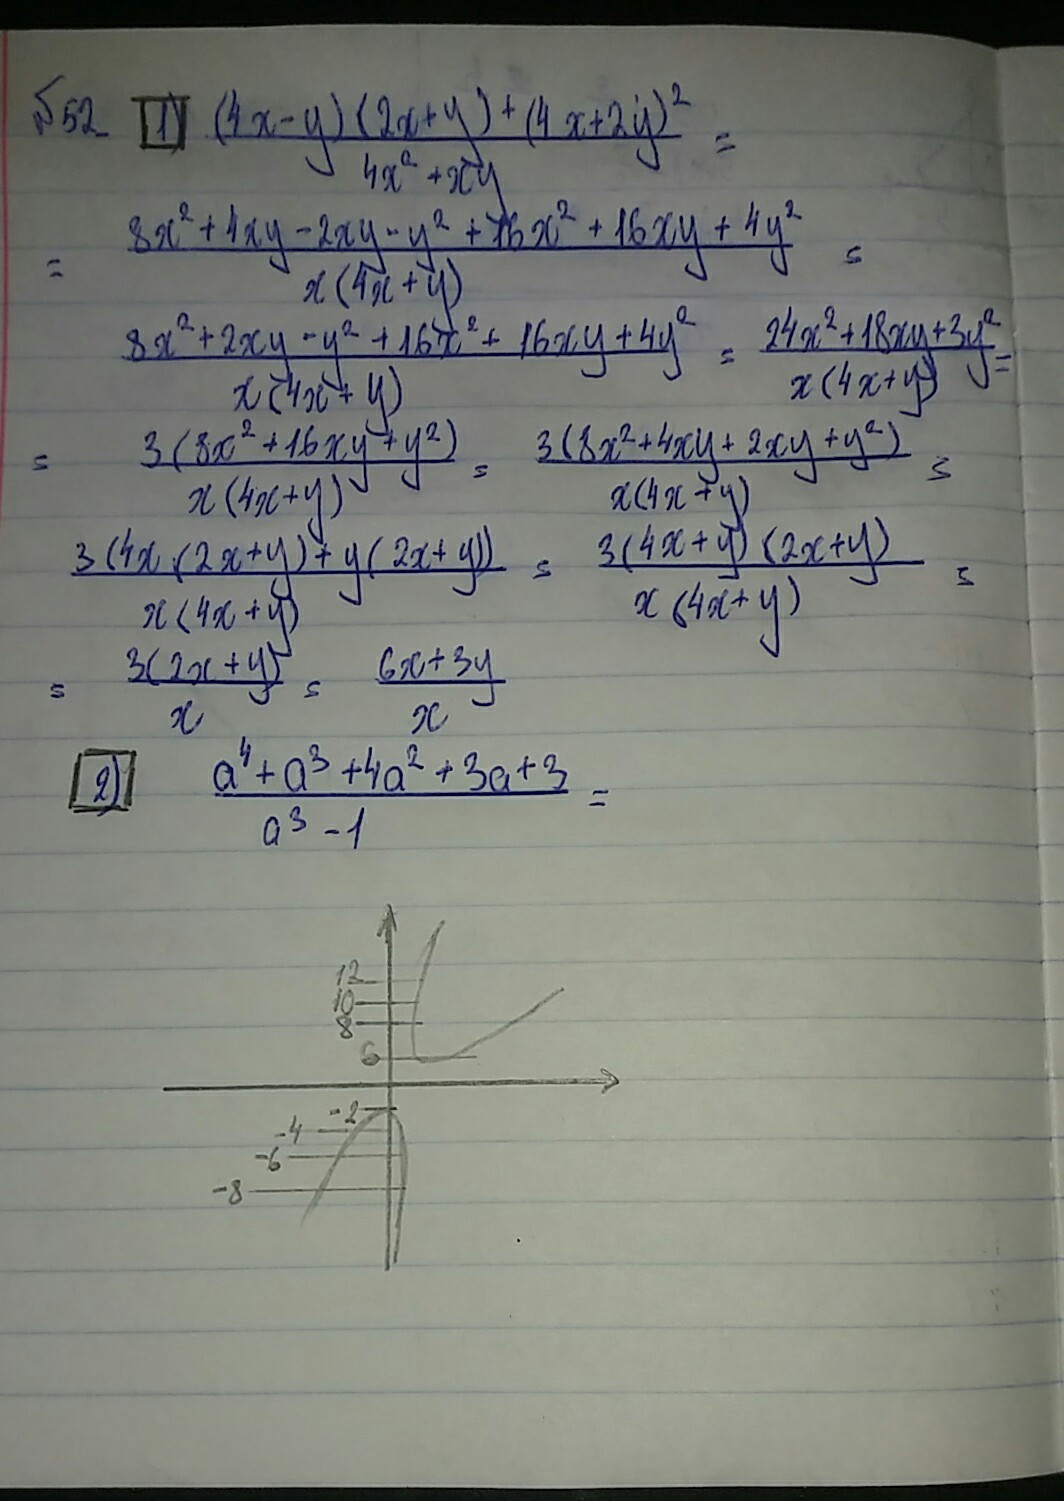 №52 1) ((4x-y)(2x+y)+(4x+2y)²)/(4x²+xy) =
= (8x²+4xy-2xy-y²+16x²+16xy+4y²)/(x(4x+y)) =
(8x²+2xy-y²+16x²+16xy+4y²)/(x(4x+y)) = (24x²+18xy+3y²)/(x(4x+y)) =
= (3(8x²+16xy+y²))/(x(4x+y)) = (3(8x²+4xy+2xy+y²))/(x(4x+y)) =
(3(4x(2x+y)+y(2x+y)))/(x(4x+y)) = (3(4x+y)(2x+y))/(x(4x+y)) =
= (3(2x+y))/x = (6x+3y)/x
2) (a⁴+a³+4a²+3a+3)/(a³-1) =
12
10
8
6
-2
-4
-6
-8